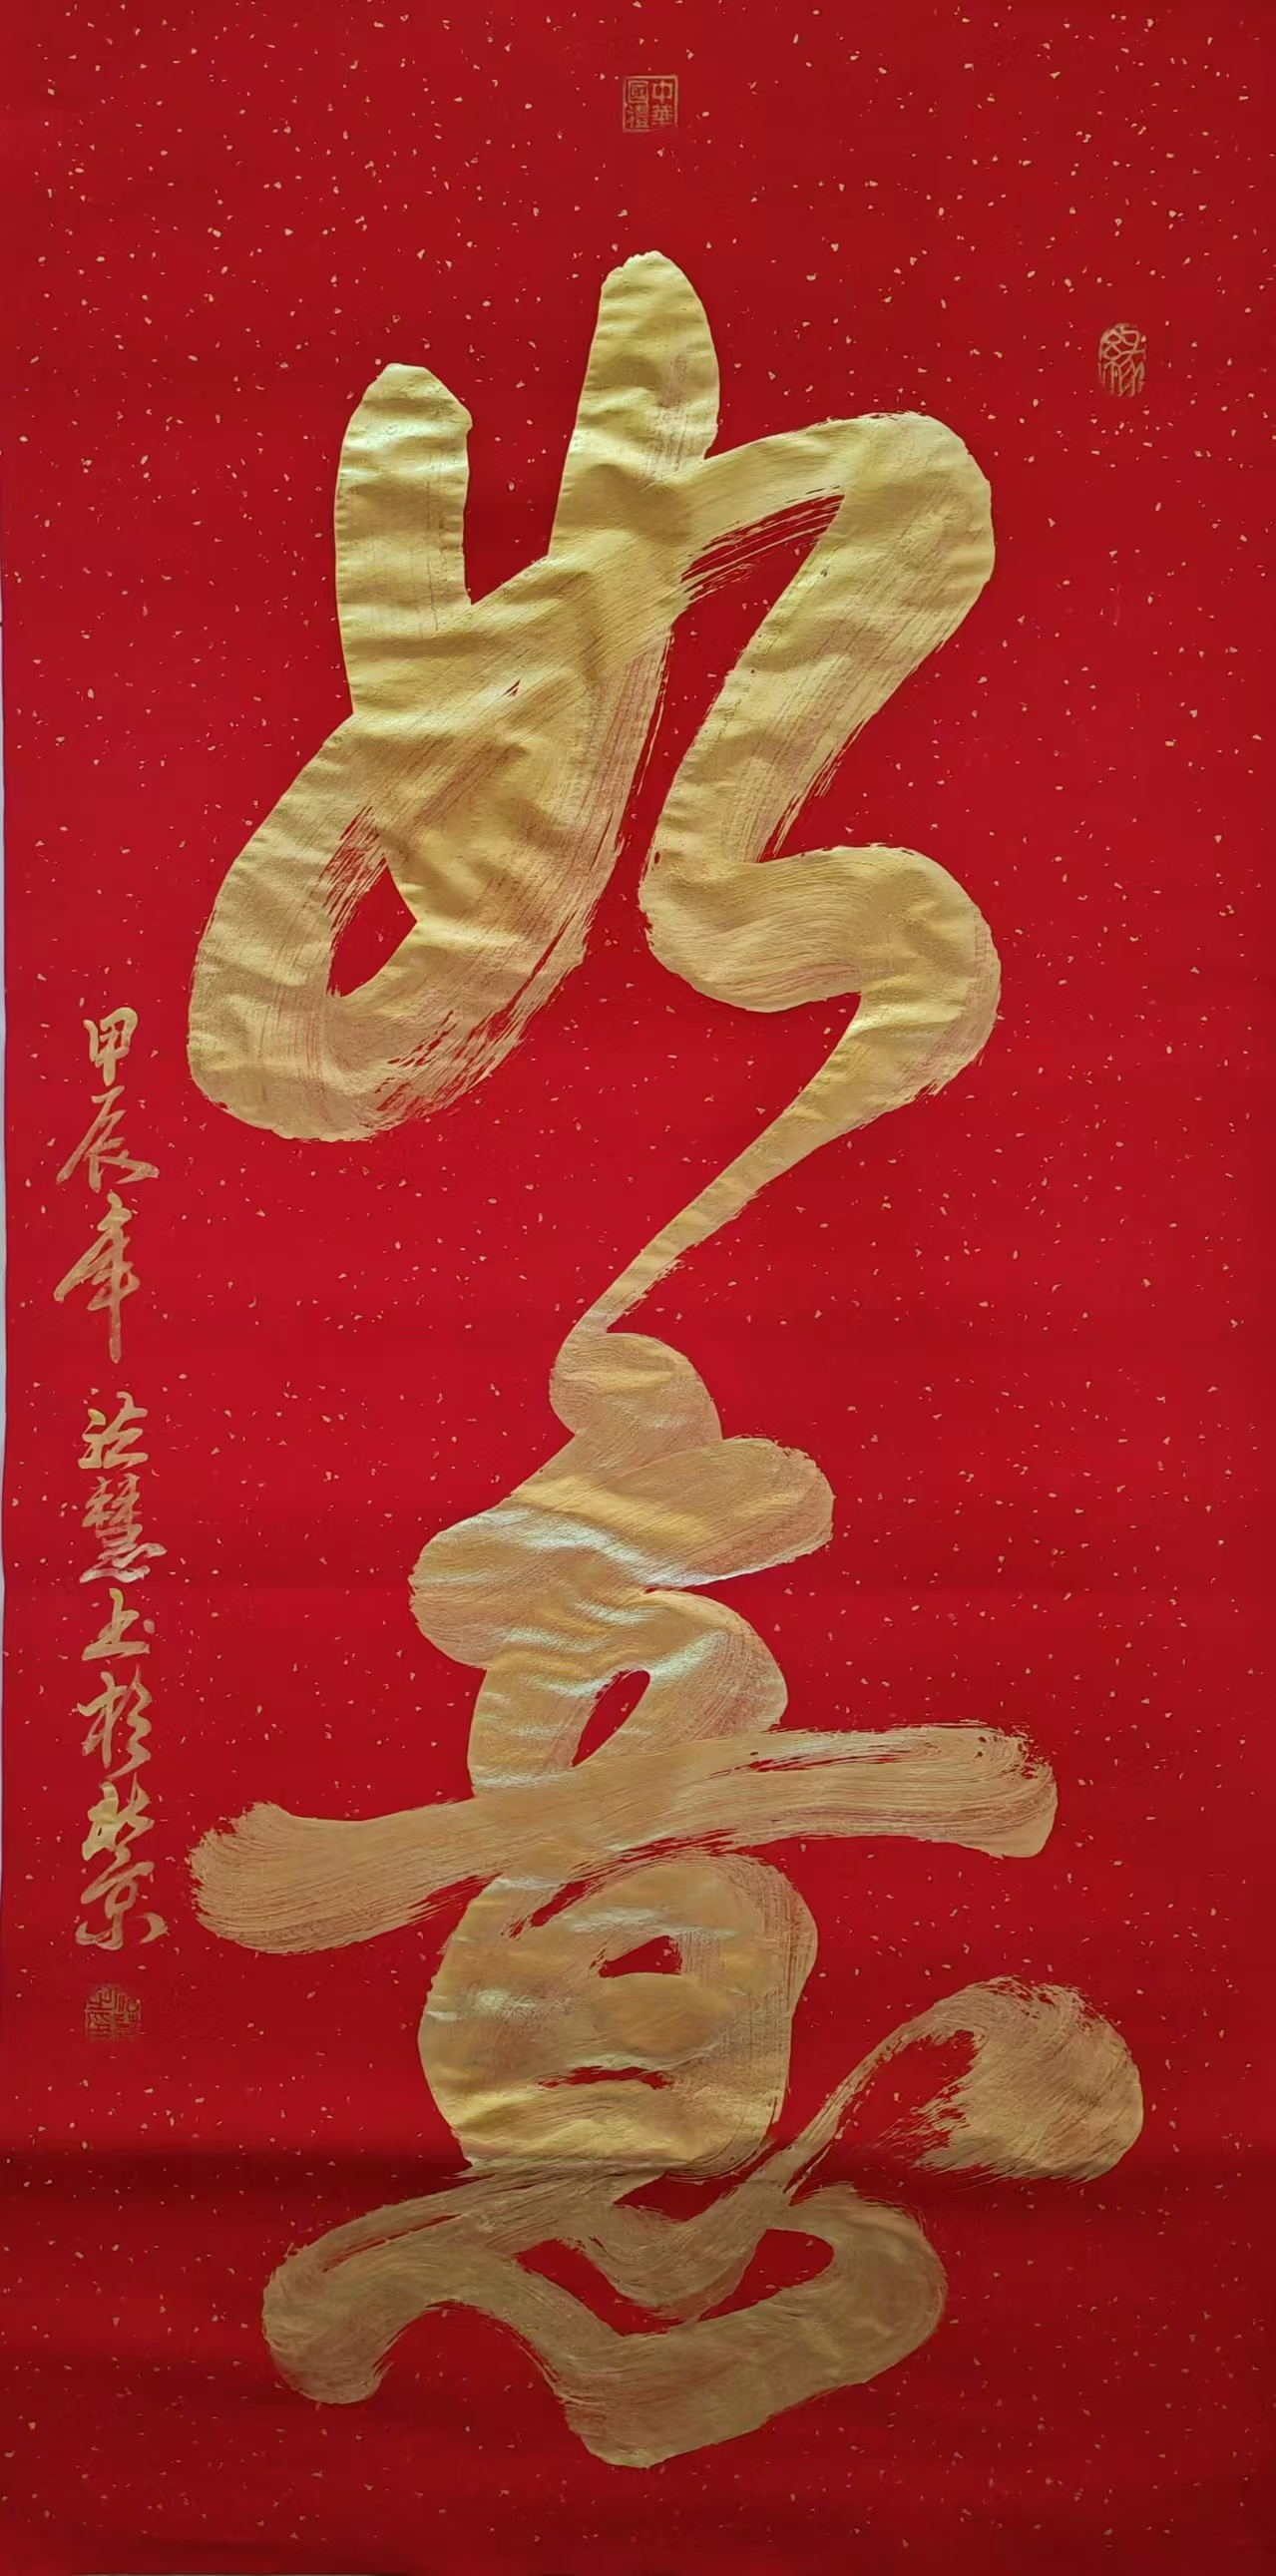 中華國禮
緣
如意
甲辰年 法慧书於北京